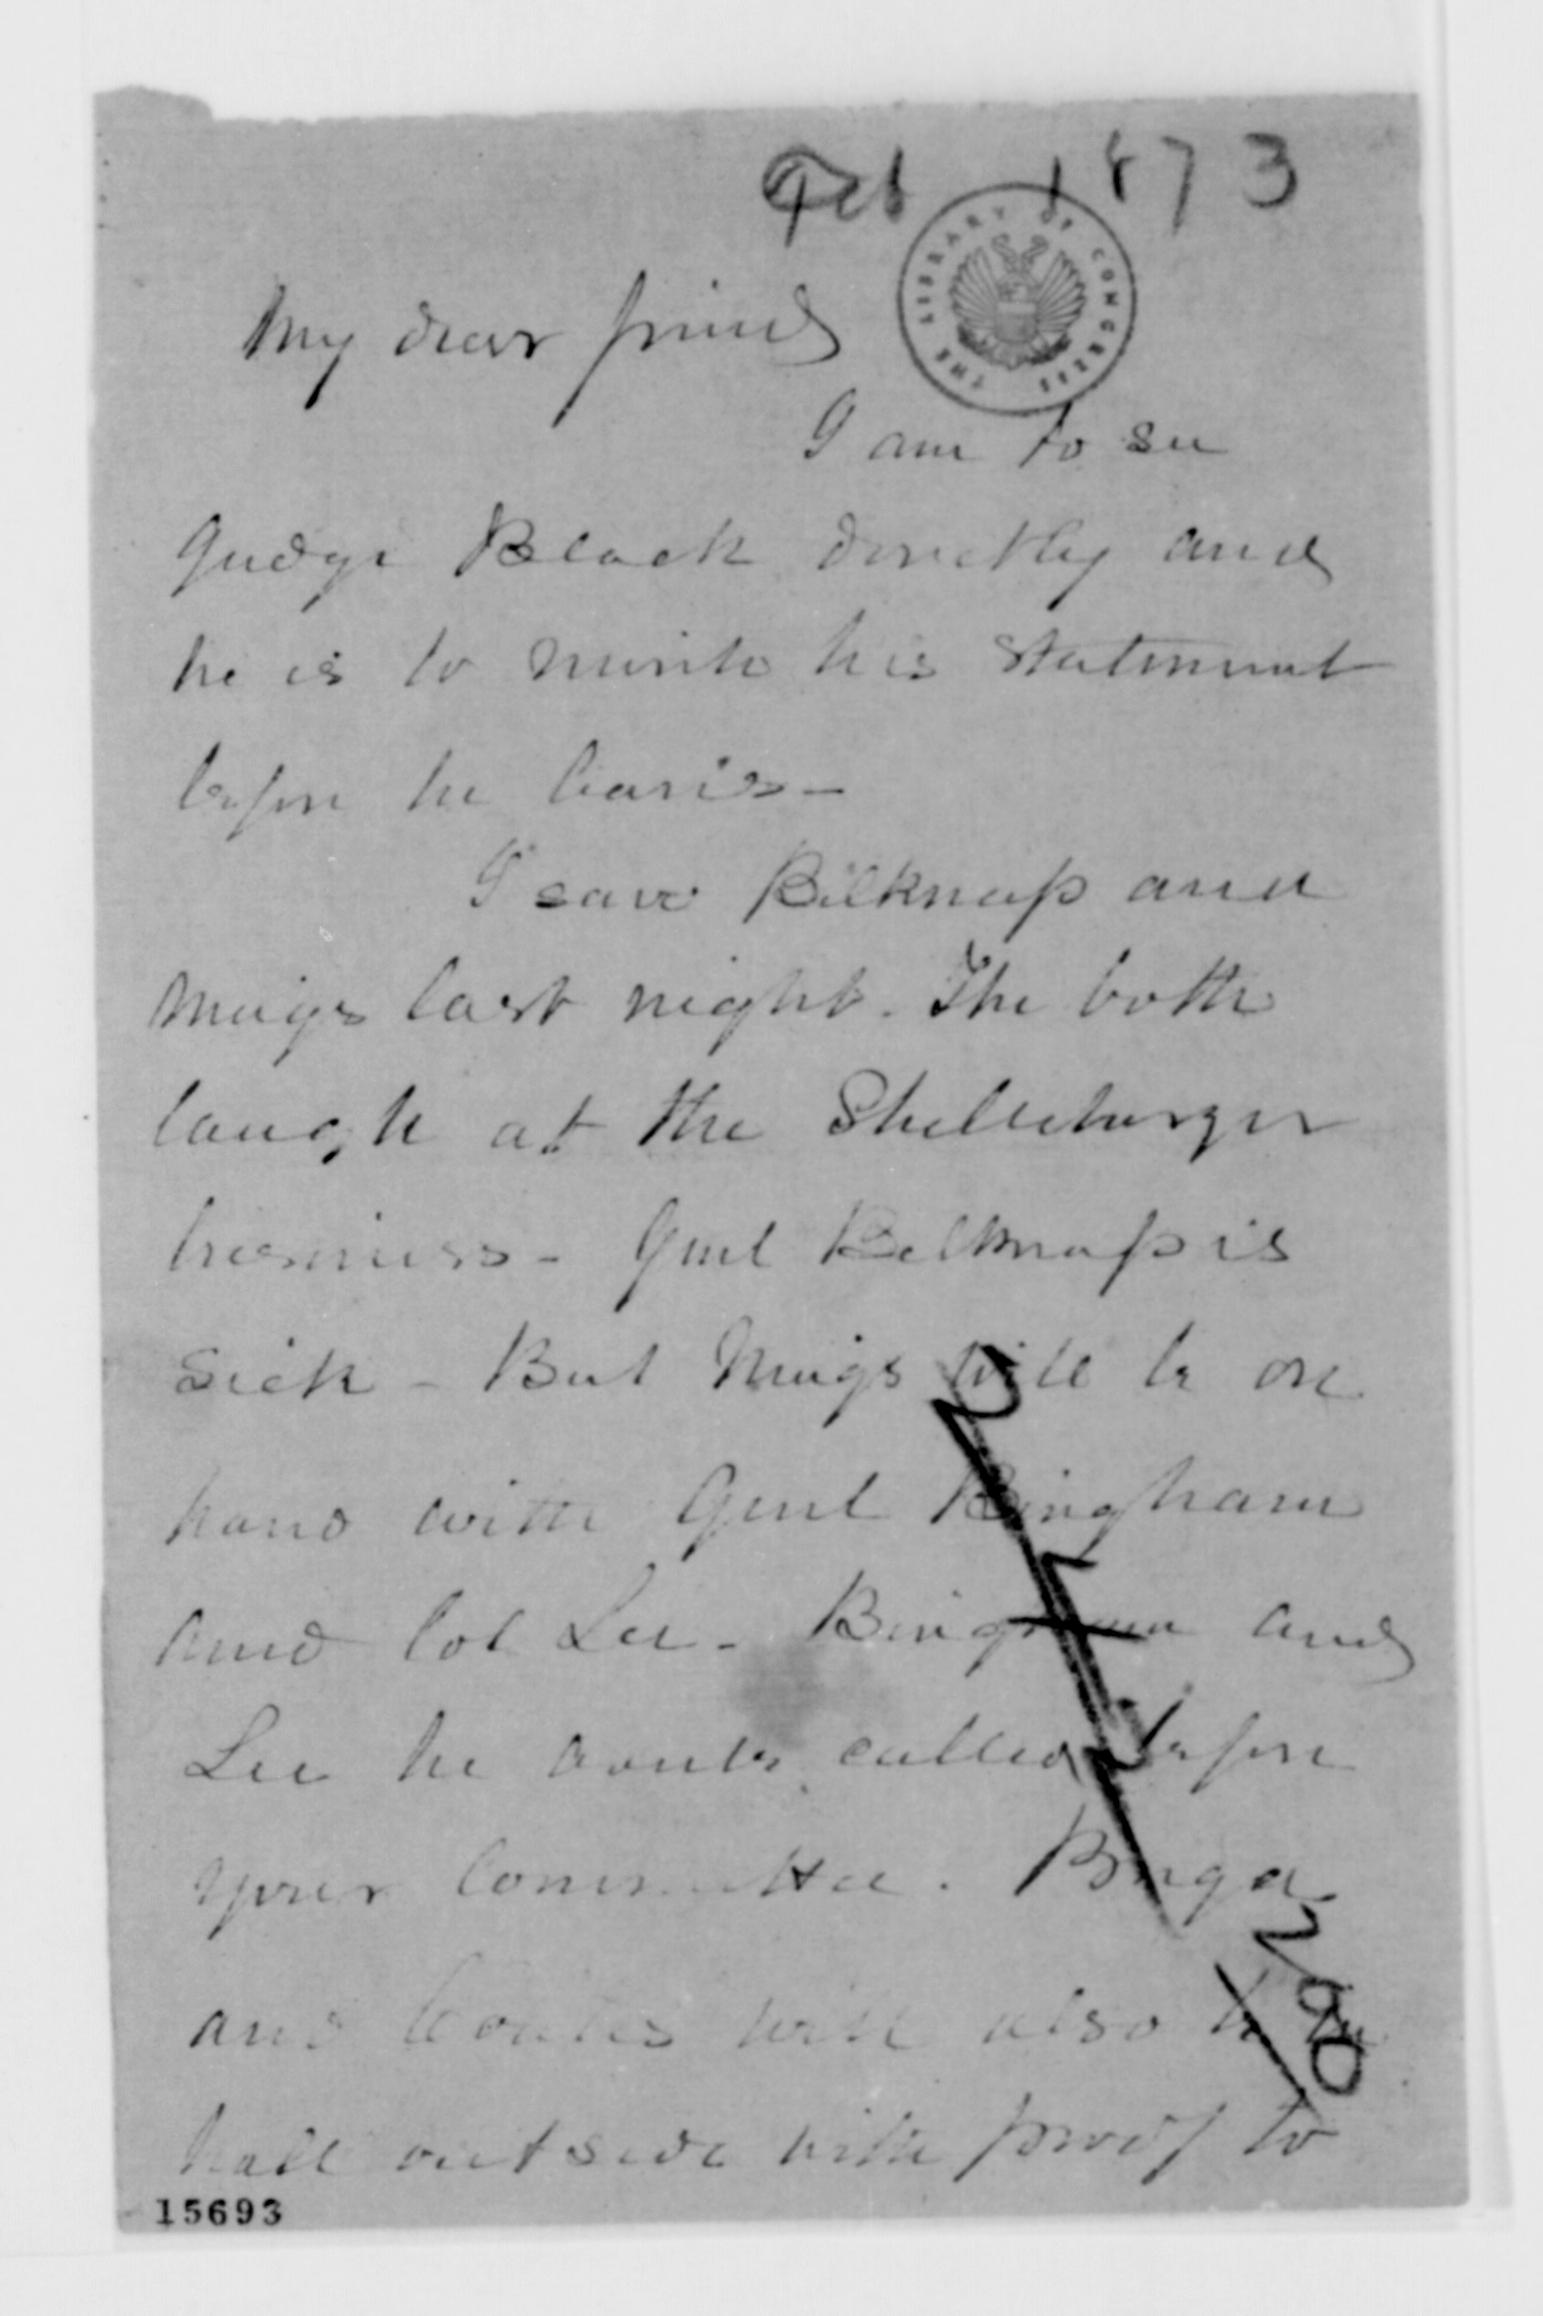 Feb 1873
THE LIBRARY OF CONGRESS
My dear friend
I am to see
Judge Black directly and
he is to write his statement
before he leaves –
I saw Belknap and
Meigs last night. The both
laugh at the Shellebarger
business – Genl Belknap is
sick – But Meigs will be on
hand with Genl Bingham
and Col Lee – Bingham and
Lee he wants called before
your Committee.
and will also be
hall outside with proof to
15693